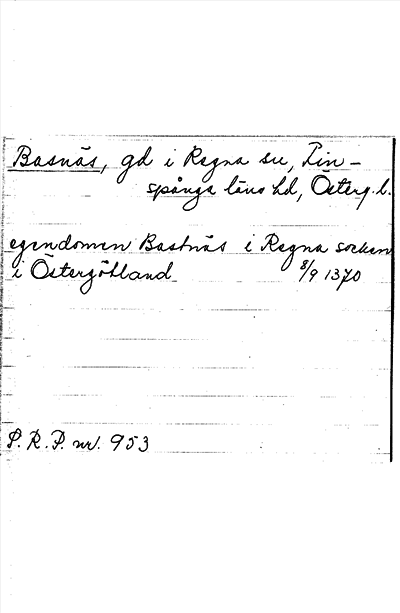 Basnäs, gd i Regna sn, Fin-
spånga läns hd, Österg. l.
egendomen Bastnäs i Regna socken
i Östergötland 8/9 1370
S. R. P. nr. 953